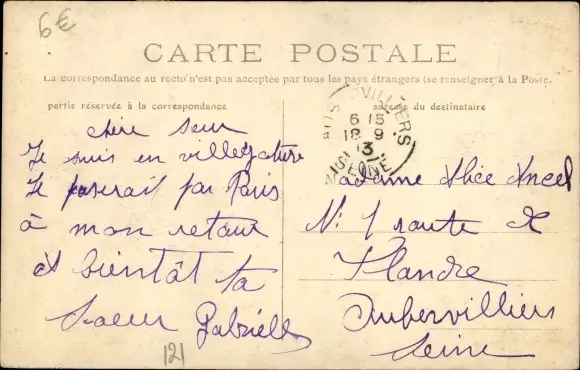 6€
CARTE POSTALE
La correspondance au recto n'est pas acceptée par tous les pays étrangers (se renseigner à la Poste.
partie réservée à la correspondance
adresse du destinataire
AUBERVILLIERS
6 15
18 9
13
SEINE
chère seur
Je suis en villegature
Je paserait par Paris
à mon retour
à bientôt ta
soeur Gabrielle
Madame Alice Ancel
N: 1 route de
Flandre
Aubervilliers
Seine
121